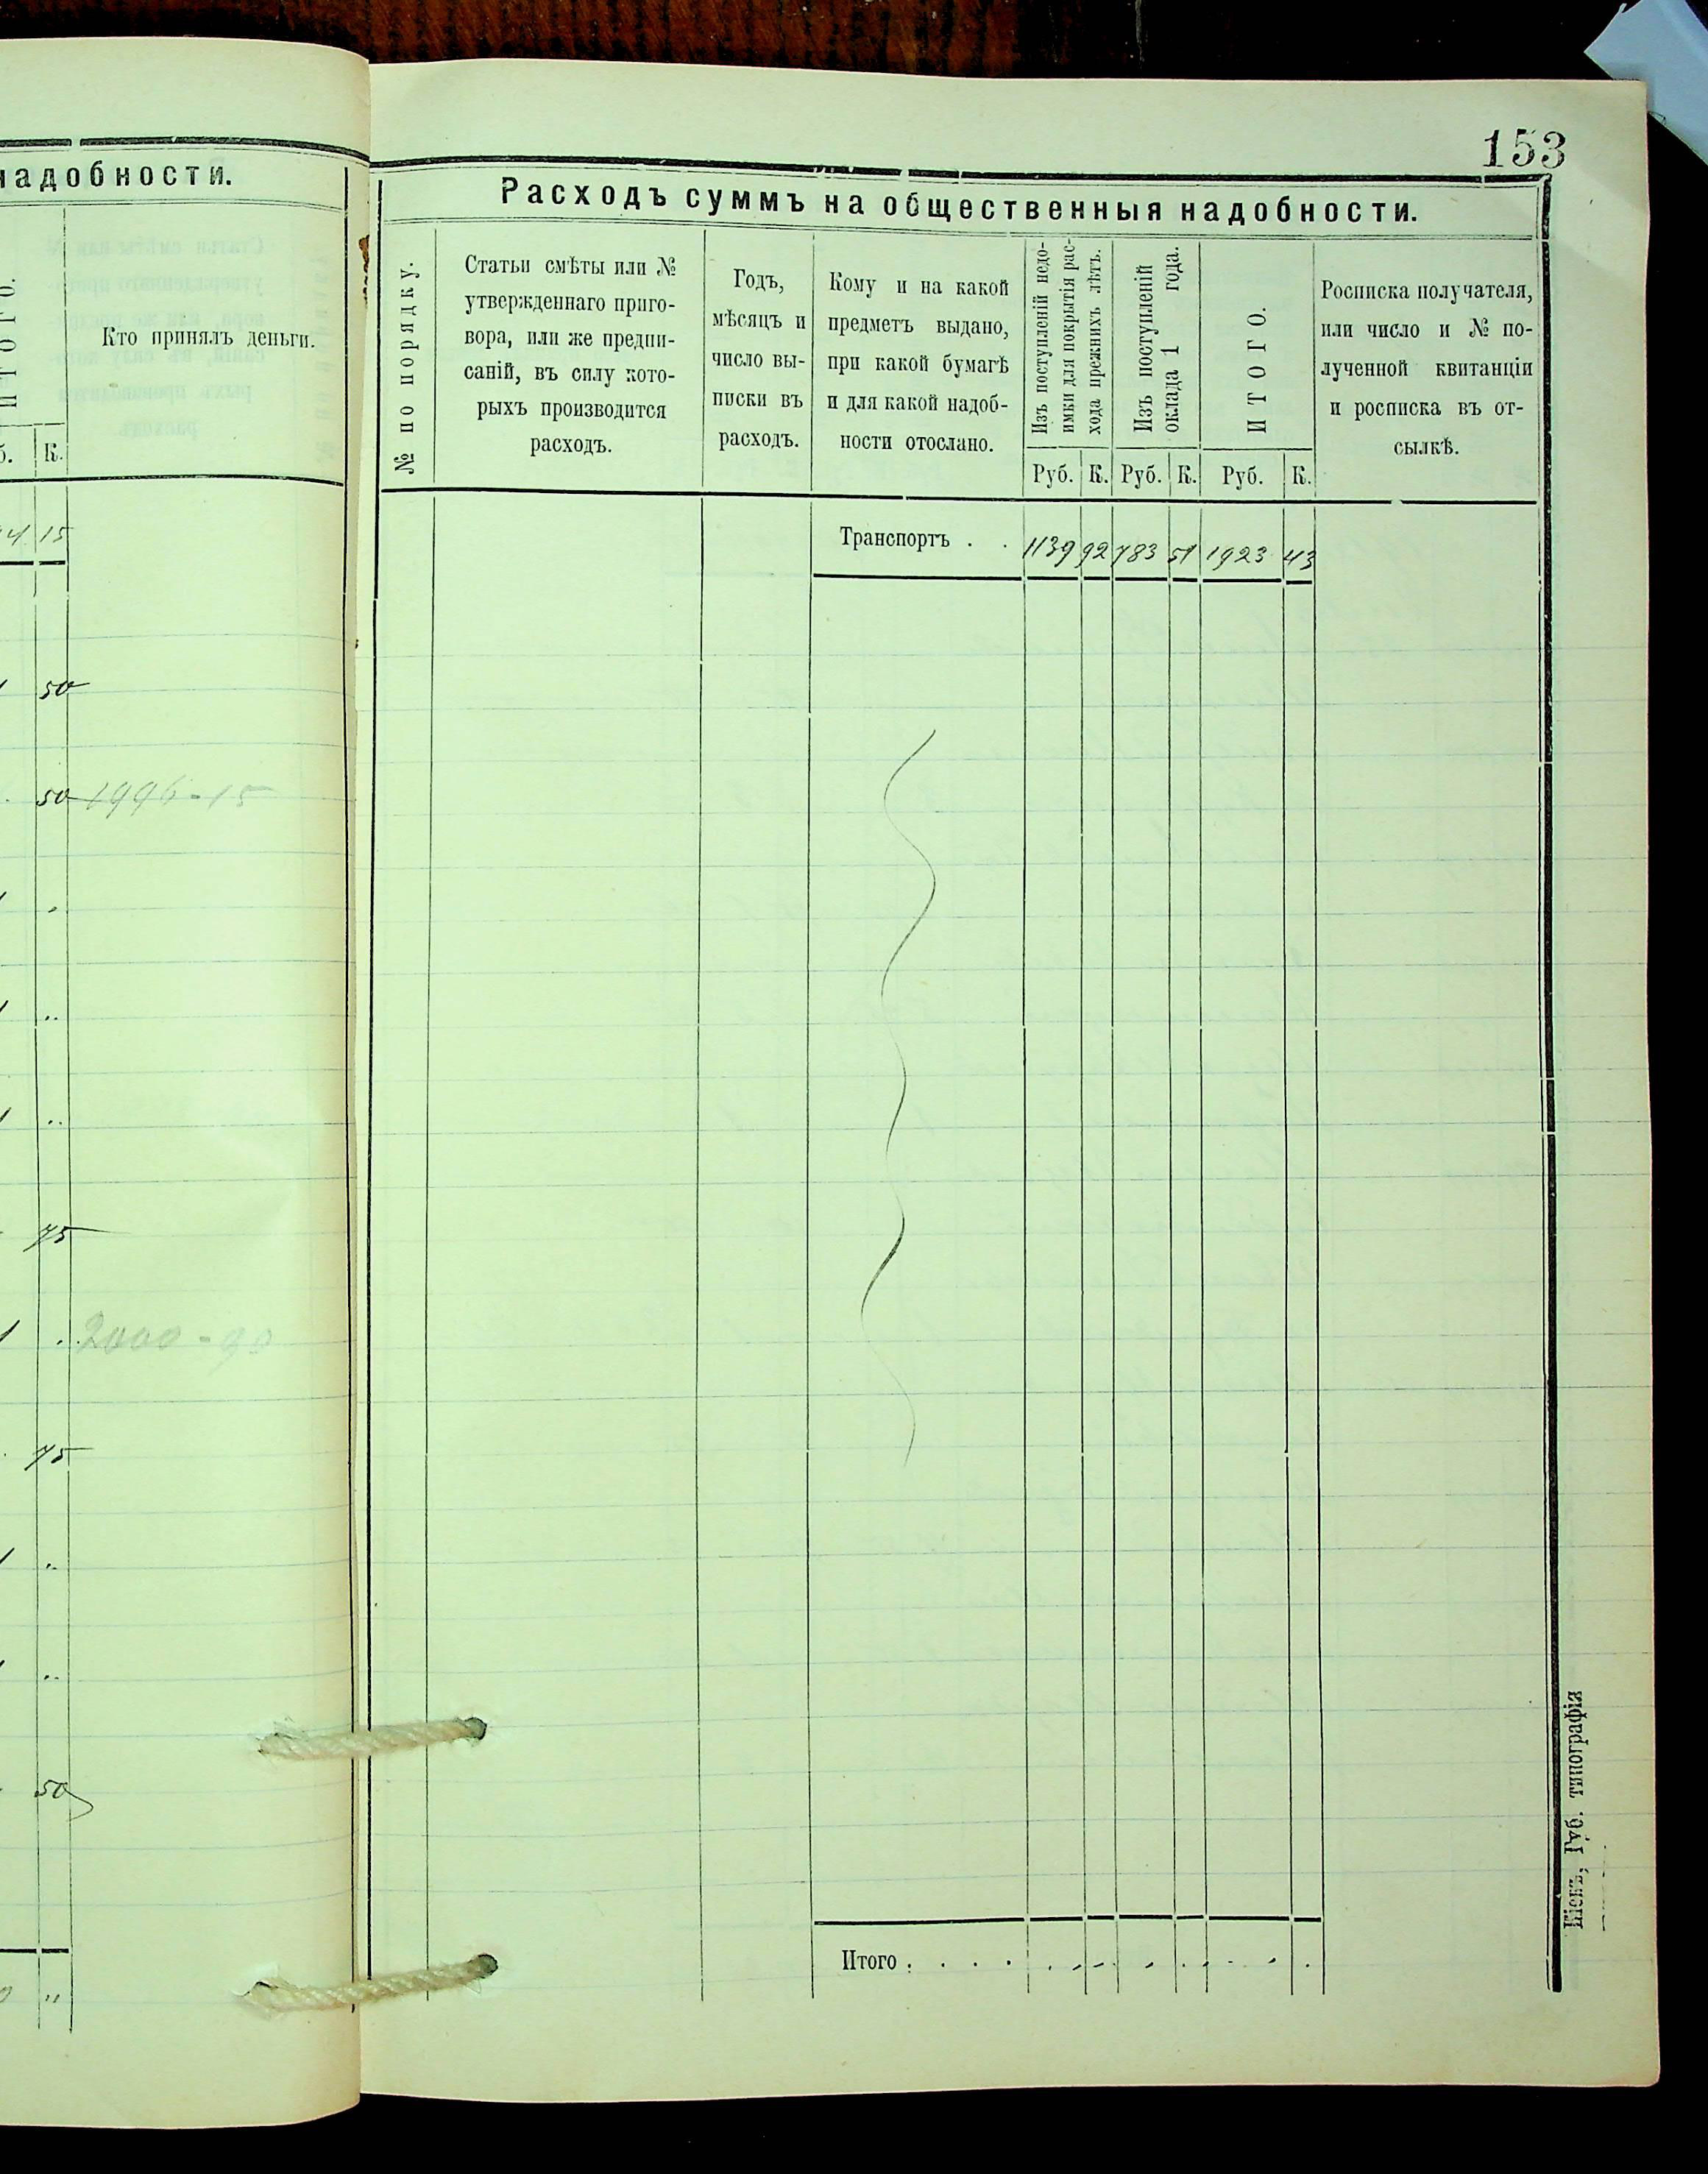 надобности.
ИТОГО.
К.
Кто принялъ деньги.
15
50
50 1996-15
75
2000-90
75
50
153
Расходъ суммъ на общественныя надобности.
№ по порядку.
Статьи смѣты или №
утвержденнаго приго-
вора, или же предпи-
саній, въ силу кото-
рыхъ производится
расходъ.
Годъ,
мѣсяцъ и
число вы-
писки въ
расходъ.
Кому и на какой
предметъ выдано,
при какой бумагѣ
и для какой надоб-
ности отослано.
Изъ поступленій недо-
имки для покрытія рас-
хода прежнихъ лѣтъ.
Изъ поступленій
оклада 1 года.
ИТОГО.
Руб. К. Руб. К. Руб. К.
Росписка получателя,
или число и № по-
лученной квитанціи
и росписка въ от-
сылкѣ.
Транспортъ . . 1139 92 783 51 1923 43
Итого . . . .
Кіевъ, Губ. типографія